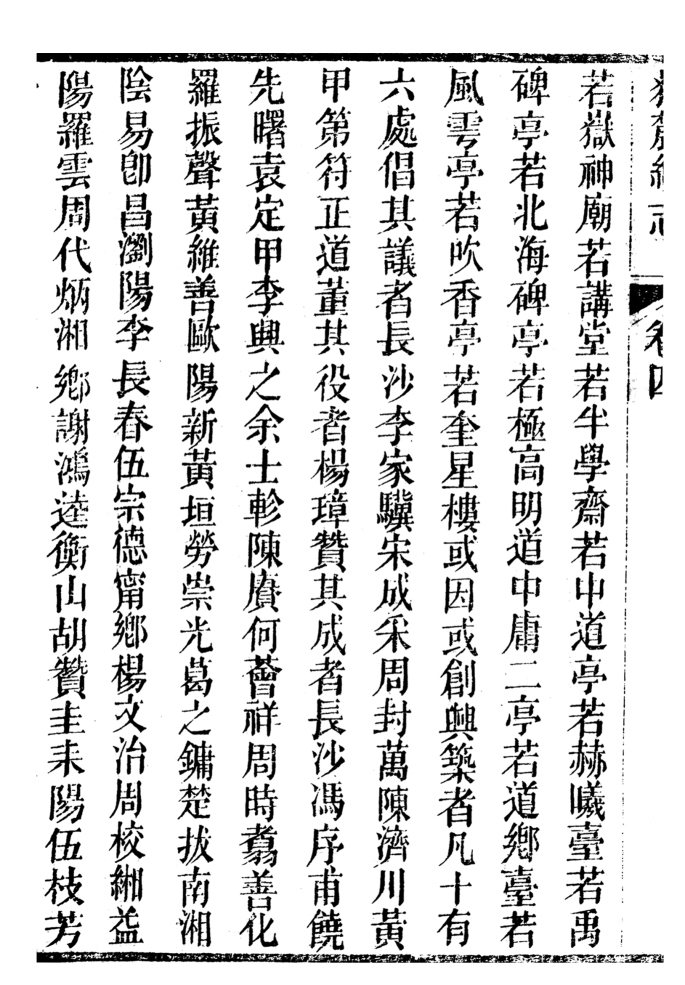 嶽麓續志
卷四
若嶽神廟若講堂若半學齋若中道亭若赫曦臺若禹
碑亭若北海碑亭若極高明道中庸二亭若道鄉臺若
風雩亭若吹香亭若奎星樓或因或創興築者凡十有
六處倡其議者長沙李家驥宋成釆周封萬陳濟川黃
甲第符正道董其役者楊璋贊其成者長沙馮序甫饒
先曙袁定甲李興之余士軫陳賡何薈祥周時翥善化
羅振聲黃維善歐陽新黃垣勞崇光葛之鏞楚拔南湘
陰易卽昌瀏陽李長春伍宗德甯鄉楊文治周校緗益
陽羅雲周代炳湘鄉謝鴻逵衡山胡贊圭耒陽伍枝芳